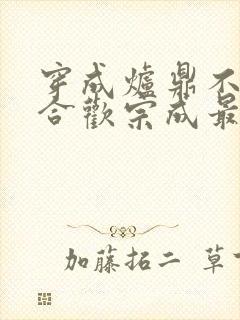 穿成爐鼎不
合歡宗成最
加藤拓二 草